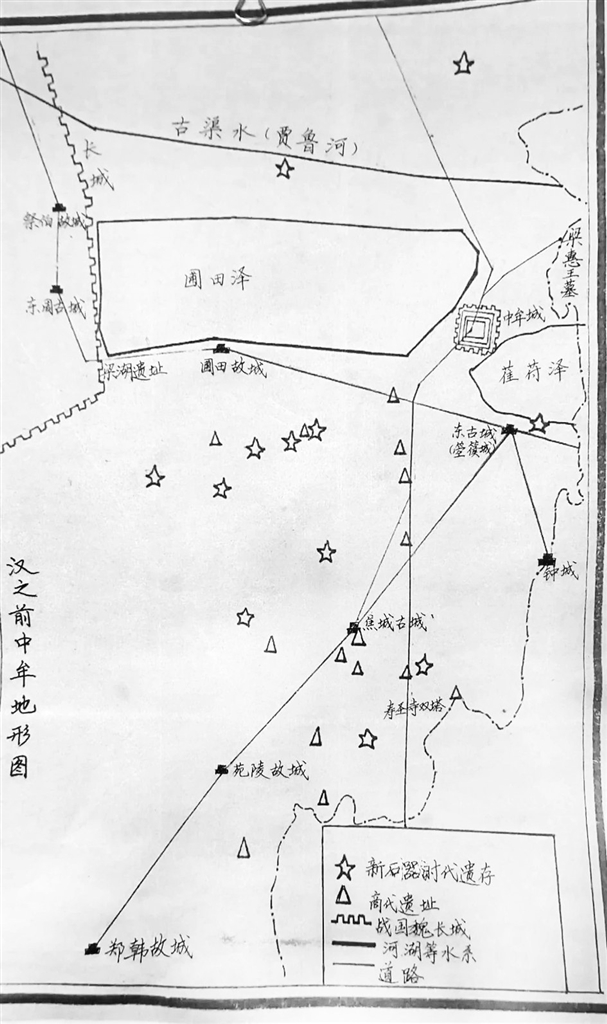 古渠水(贾鲁河)
长城
祭伯故城
东周古城
圃田泽
梁惠王墓
中牟城
萑苻泽
梁湖遗址
圃田故城
东古城
(箜篌城)
钟城
焦城古城
寿圣寺双塔
苑陵故城
郑韩故城
汉之前中牟地形图
新石器时代遗存
商代遗址
战国魏长城
河湖等水系
道路